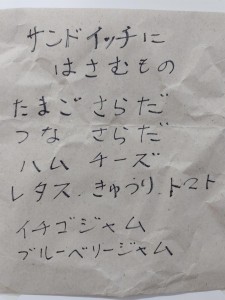 サンドイッチに
はさむもの
たまご さらだ
つな さらだ
ハム チーズ
レタス.きゅうり.トマト
イチゴジャム
ブルーベリージャム